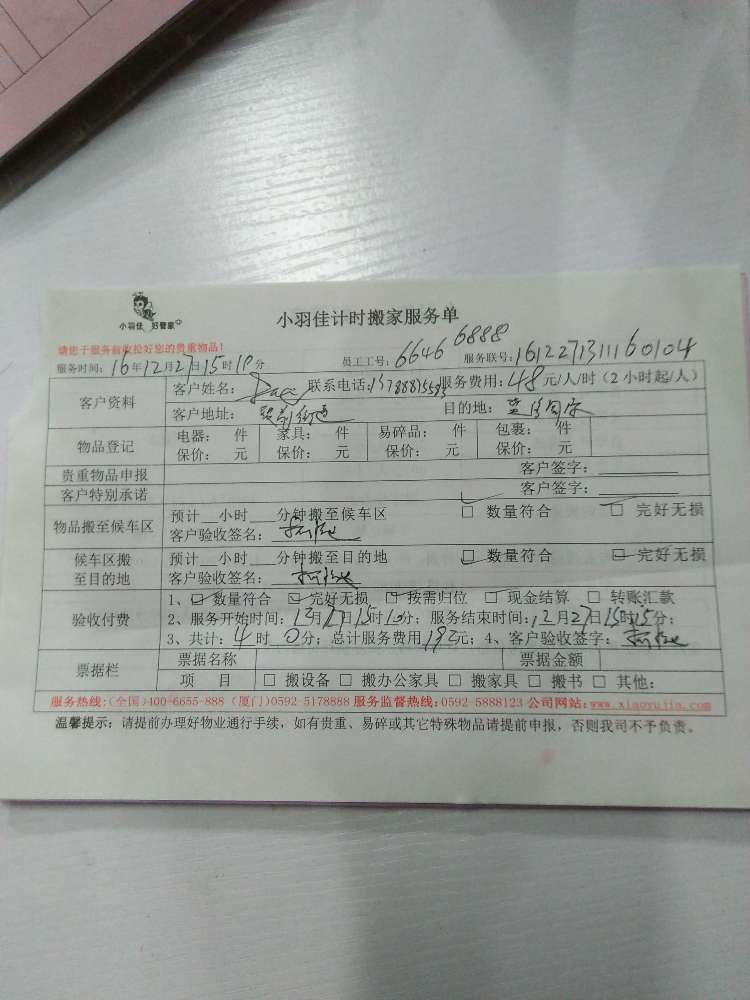 小羽佳 好管家
小羽佳计时搬家服务单
请您于服务前收拾好您的贵重物品！
服务时间：16年12月27日15时10分 员工工号：6646 6888 服务联号：161227131116 0104
客户资料
客户姓名： 联系电话： 服务费用：48元/人/时（2小时起/人）
客户地址： 目的地：
物品登记
电器： 件 家具： 件 易碎品： 件 包裹： 件
保价： 元 保价： 元 保价： 元 保价： 元
贵重物品申报 客户签字：
客户特别承诺 客户签字：
物品搬至候车区
预计__小时___分钟搬至候车区 □ 数量符合 □ 完好无损
客户验收签名：
候车区搬至目的地
预计__小时___分钟搬至目的地 ☑ 数量符合 ☑ 完好无损
客户验收签名：
验收付费
1、☑ 数量符合 ☑ 完好无损 ☑ 按需归位 □ 现金结算 □ 转账汇款
2、服务开始时间：12月27日15时10分；服务结束时间：12月27日15时15分；
3、共计：4时0分；总计服务费用192元；4、客户验收签字：
票据栏
票据名称 票据金额
项 目 □ 搬设备 □ 搬办公家具 □ 搬家具 □ 搬书 □ 其他：
服务热线：(全国)400-6655-888 (厦门)0592-5178888 服务监督热线：0592-5888123 公司网站：www.xiaoyujia.com
温馨提示：请提前办理好物业通行手续，如有贵重、易碎或其它特殊物品请提前申报，否则我司不予负责。